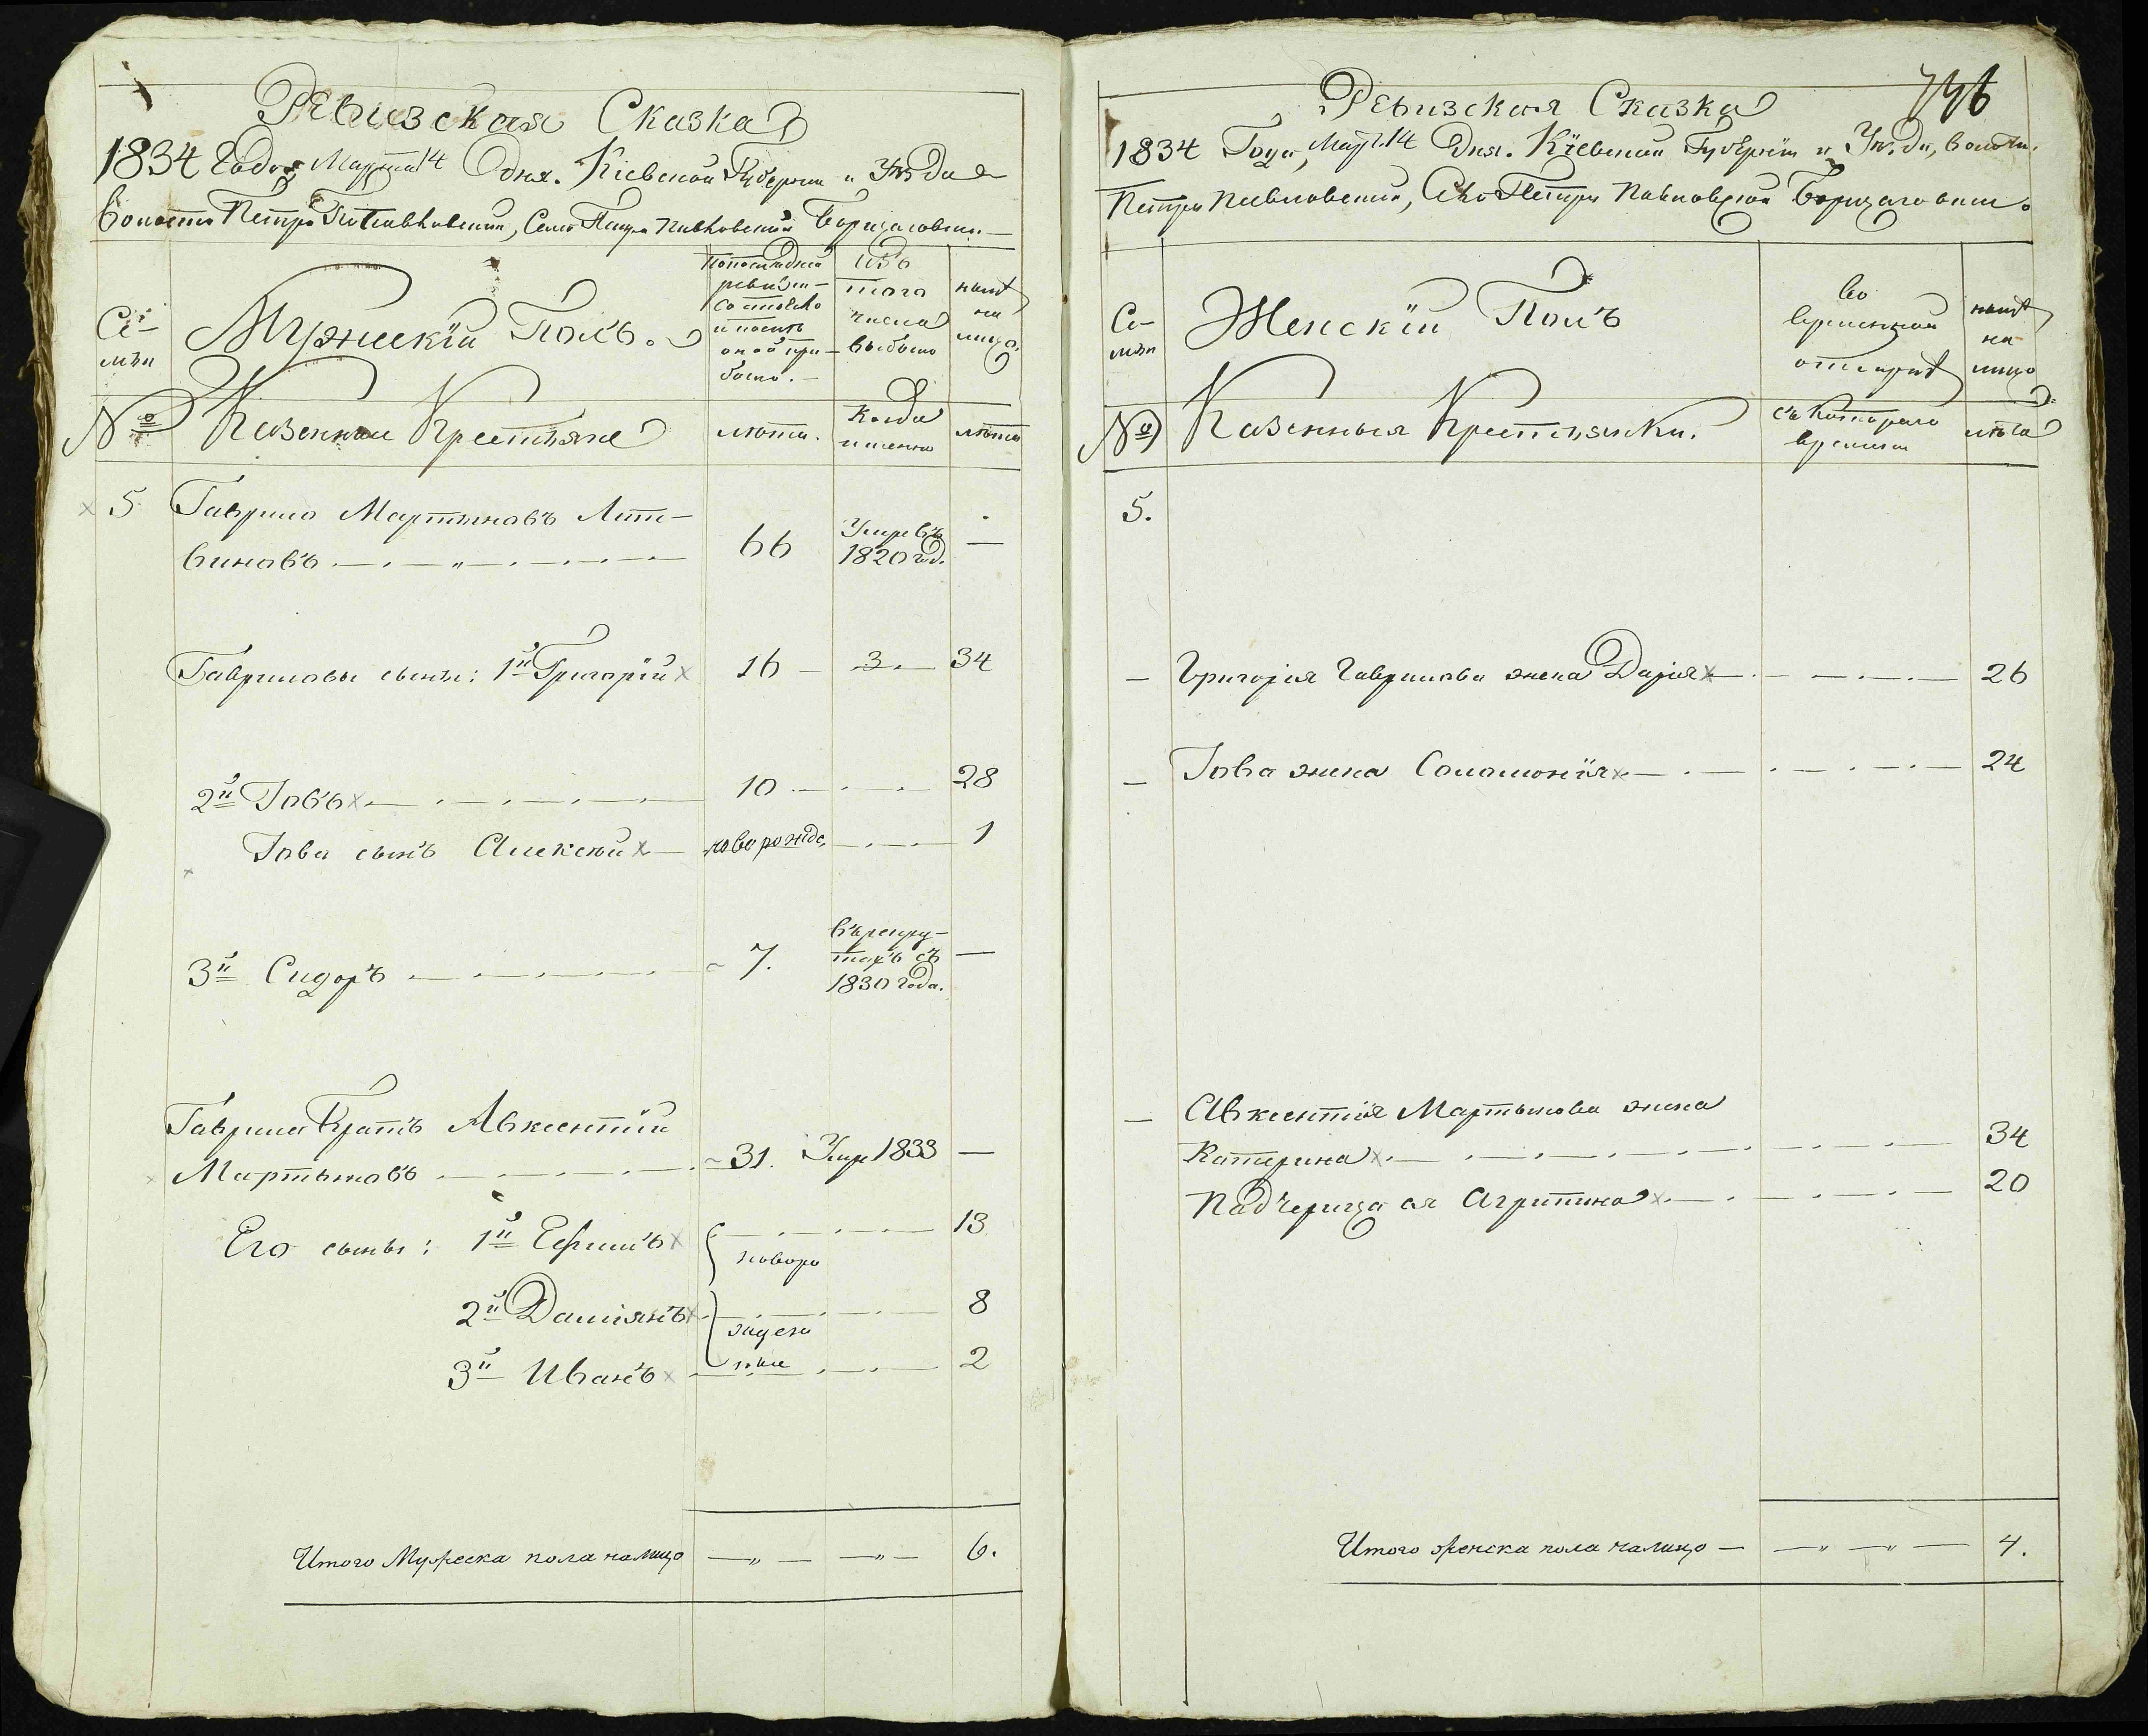 Ревизская Сказка
1834 Года Марта 14 Дня. Кіевской Губернии и Уѣзда
Волости Петро Павловской, Село Петро Павловской Борщаговки
Се-
мьи
Мужескій Полъ.
По последней
ревизіи
состояло
и после
оной при-
было.
Изъ
того
числа
выбыло
ныне
на
лицо
№
Казенные Крестьяне
лета.
Когда
именно
лета
5 Гаврило Мартыновъ Лит-
виновъ 66 Умре въ 1820 год. —
Гавриловы сыны: 1й Григорій 16 — 3 — 34
2й Іовъ 10 28
Іова сынъ Алексѣй новорожде. 1
3й Сидоръ 7. въ рекру-
тахъ съ
1830 года. —
Гаврила Братъ Авксентій
Мартыновъ 31. Умре 1833 —
Его сыны: 1й Ефимъ 13
новоро
2й Даміянъ 8
3й Иванъ 2
Итого Мужеска пола налицо 6.
746
Ревизская Сказка
1834 Года, Март. 14 Дня. Кіевской Губерніи и Уѣзда, волости
Петро Павловской, Село Петро Павловской Борщаговки.
Се-
мьи
Женскій Полъ
во
временной
отлучке
ныне
на
лицо
№
Казенныя Крестьянки.
съ котораго
времени
лета
5.
— Григорія Гаврилова жена Дарія 26
— Іова жена Соломонія 24
— Авксентія Мартынова жена
Катерина 34
Падчерица ея Агрипина 20
Итого женска пола налицо — 4.